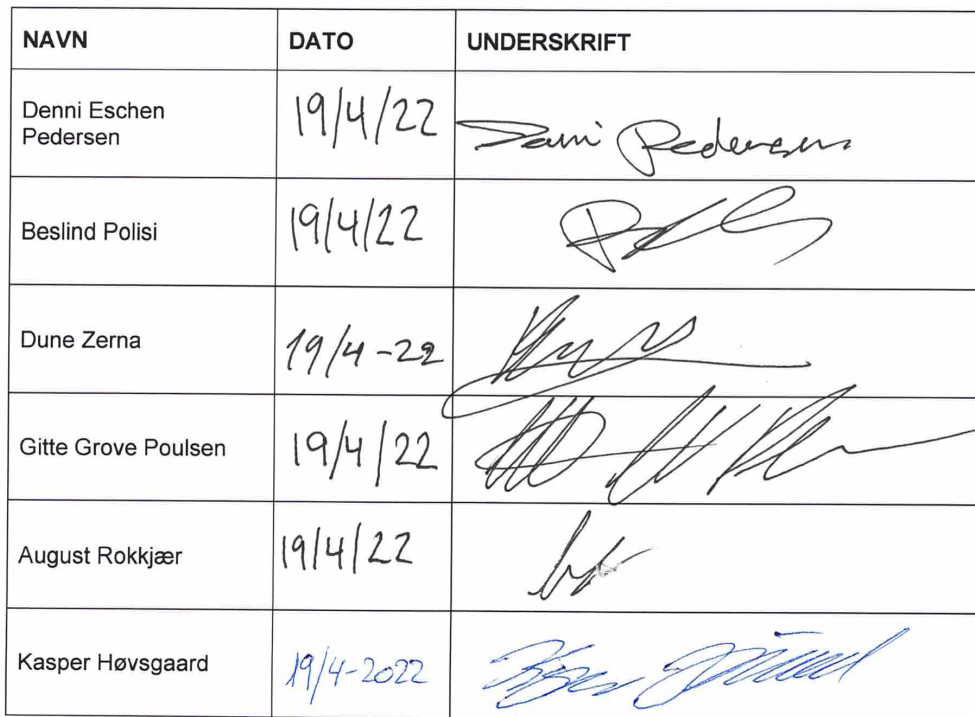 NAVN DATO UNDERSKRIFT
Denni Eschen
Pedersen 19/4/22 Denni Pedersen
Beslind Polisi 19/4/22
Dune Zerna 19/4-22
Gitte Grove Poulsen 19/4/22
August Rokkjær 19/4/22
Kasper Høvsgaard 19/4-2022